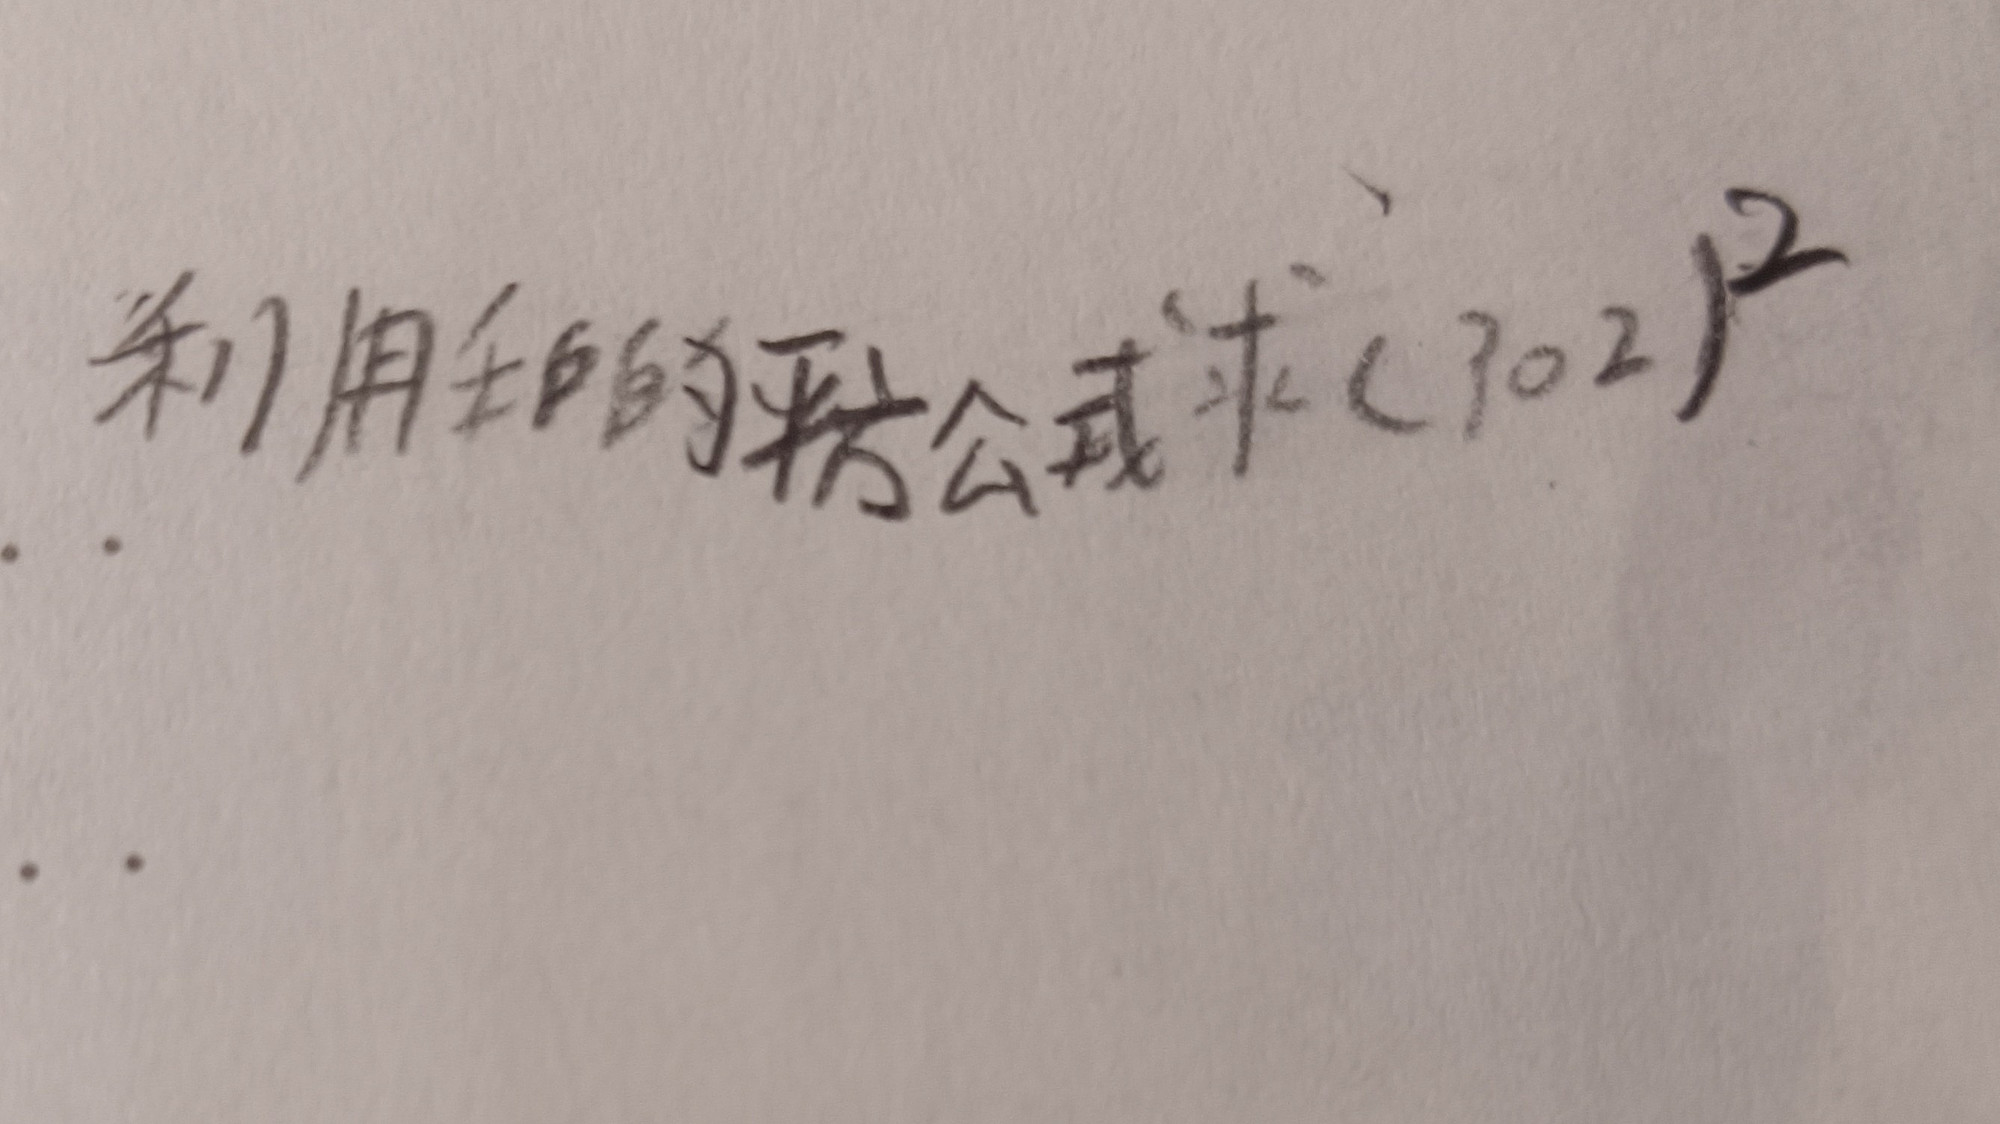 利用和的平方公式求(302)²